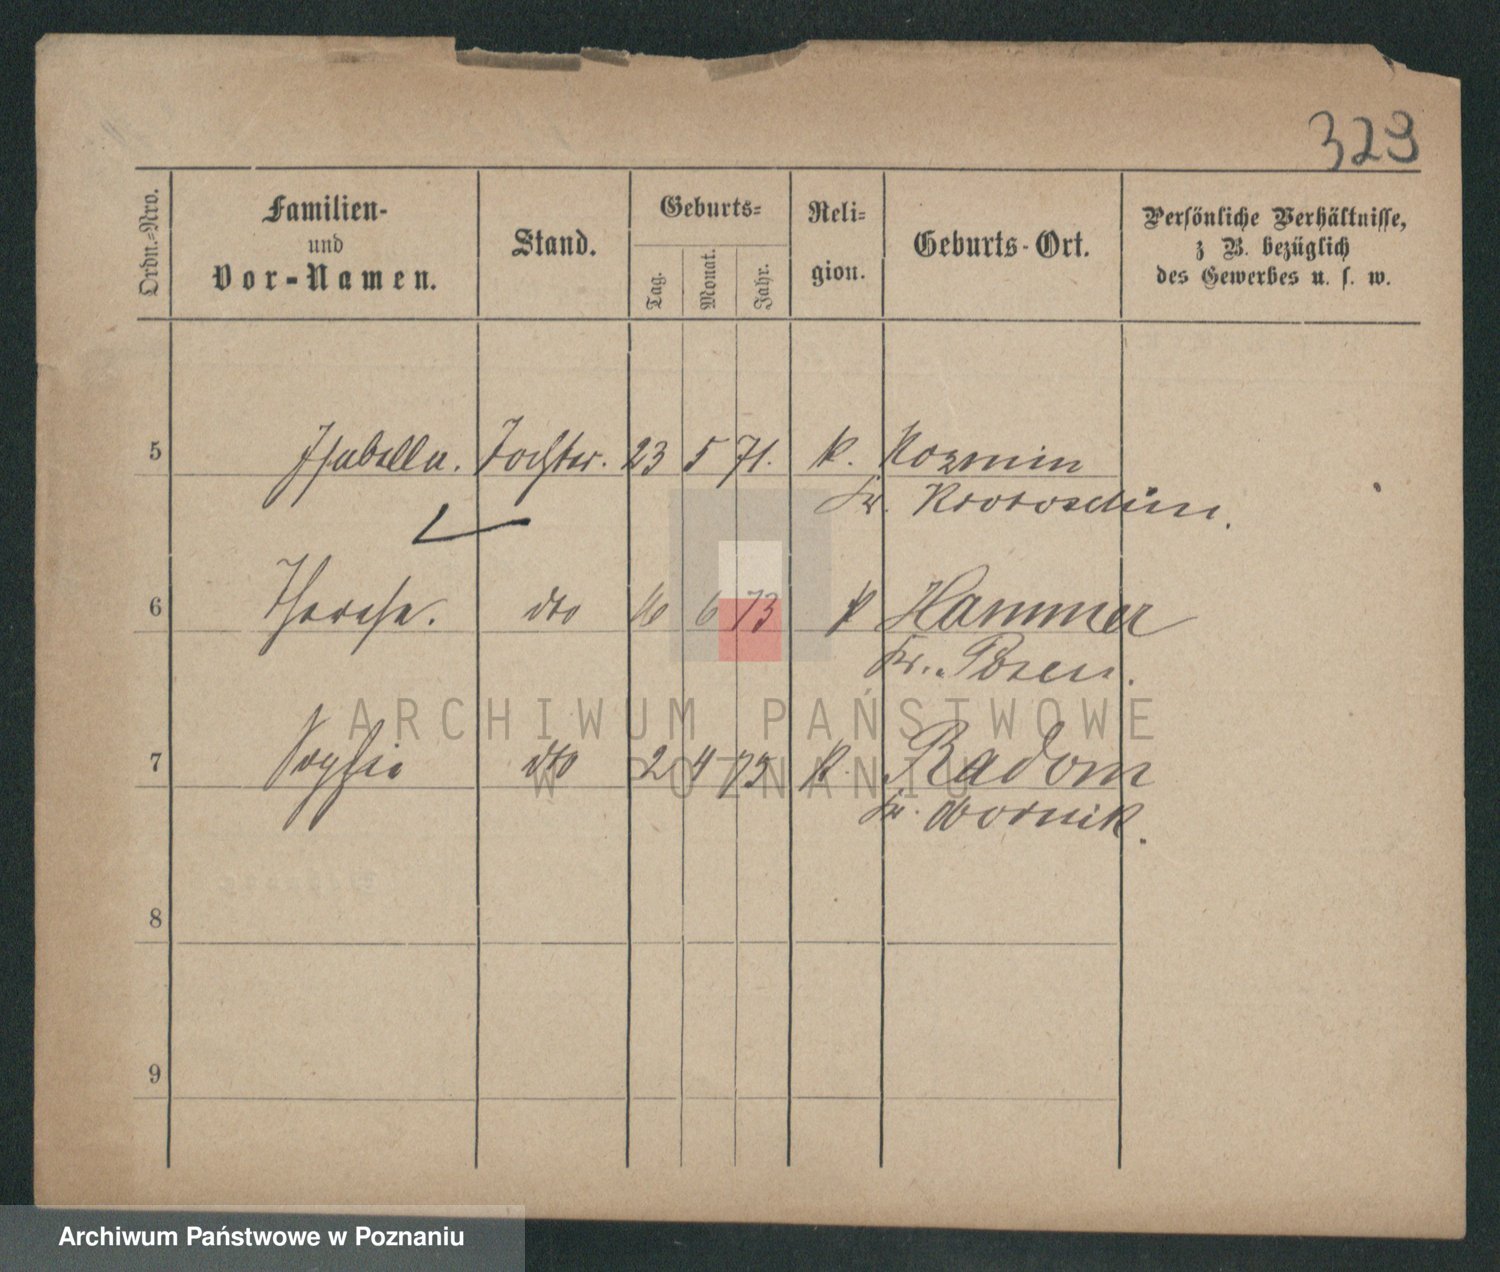 329
Ordn.-Nro.
Familien-
und
Vor-Namen.
Stand.
Geburts-
Tag.
Monat.
Jahr.
Reli-
gion.
Geburts-Ort.
Persönliche Verhältnisse,
z B. bezüglich
des Gewerbes u. s. w.
5 Isabella. Tochter. 23 5 71. k. Kozmin
Kr. Krotoschin.
6 Therese. dto 16 6 73 k Hammer
Kr. Posen.
7 Sophie dto 2 4 75 k. Radom
Kr. Obornik.
8
9
ARCHIWUM PAŃSTWOWE
W POZNANIU
Archiwum Państwowe w Poznaniu